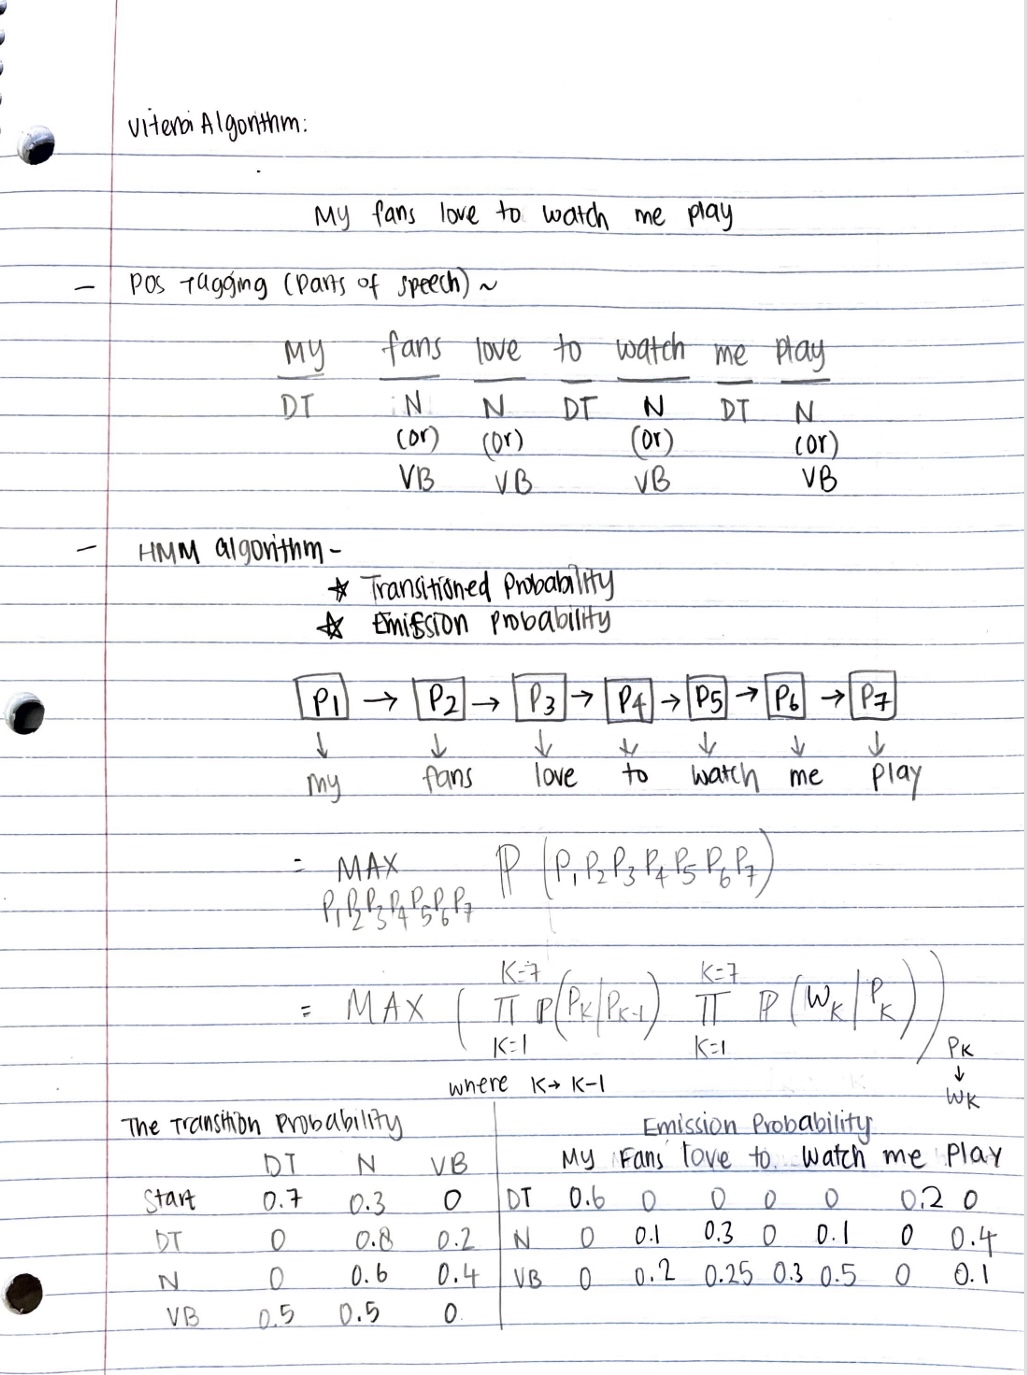 Viterbi Algorithm:
My fans love to watch me play
- POS Tagging (Parts of speech) ~
My fans love to watch me play
DT N N DT N DT N
(or) (or) (or) (or)
VB VB VB VB
- HMM algorithm -
☆ Transitioned Probability
☆ Emission Probability
P1 → P2 → P3 → P4 → P5 → P6 → P7
↓ ↓ ↓ ↓ ↓ ↓ ↓
my fans love to watch me play
= MAX ℙ (P₁P₂P₃P₄P₅P₆P₇)
P₁P₂P₃P₄P₅P₆P₇
K=7 K=7
= MAX ( π P(PK/PK-1) π ℙ (WK/PK))
K=1 K=1
PK
↓
WK
where K→ K-1
The Transition Probability
DT N VB
Start 0.7 0.3 0
DT 0 0.8 0.2
N 0 0.6 0.4
VB 0.5 0.5 0
Emission Probability
My Fans love to Watch me Play
DT 0.6 0 0 0 0 0.2 0
N 0 0.1 0.3 0 0.1 0 0.4
VB 0 0.2 0.25 0.3 0.5 0 0.1